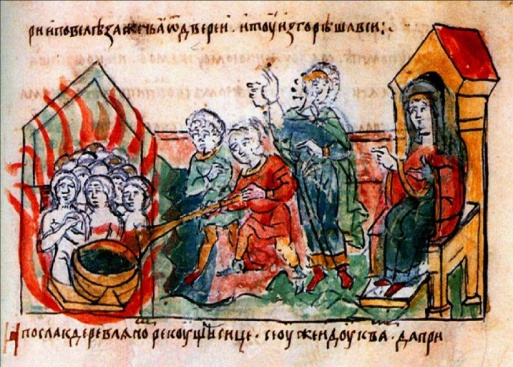 ри и повелѣ зажечьа ѿ двереи . и тоу изгорѣша вси :
и посла к деревлѧно рекоущи сице . се оуже идоу к ва . да при